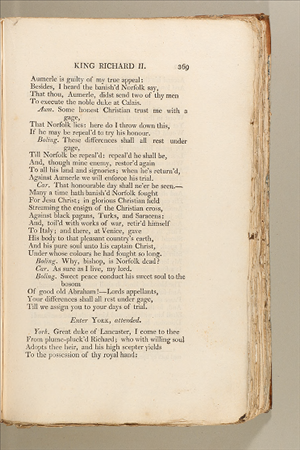 KING RICHARD II. 269
Aumerle is guilty of my true appeal:
Besides, I heard the banish'd Norfolk say,
That thou, Aumerle, didst send two of thy men
To execute the noble duke at Calais.
Aum. Some honest Christian trust me with a
gage,
That Norfolk lies: here do I throw down this,
If he may be repeal'd to try his honour.
Boling. These differences shall all rest under
gage,
Till Norfolk be repeal'd: repeal'd he shall be,
And, though mine enemy, restor'd again
To all his land and signories; when he's return'd,
Against Aumerle we will enforce his trial.
Car. That honourable day shall ne'er be seen.—
Many a time hath banish'd Norfolk fought
For Jesu Christ; in glorious Christian field
Streaming the ensign of the Christian cross,
Against black pagans, Turks, and Saracens:
And, toil'd with works of war, retir'd himself
To Italy; and there, at Venice, gave
His body to that pleasant country's earth,
And his pure soul unto his captain Christ,
Under whose colours he had fought so long.
Boling. Why, bishop, is Norfolk dead?
Car. As sure as I live, my lord.
Boling. Sweet peace conduct his sweet soul to the
bosom
Of good old Abraham!—Lords appellants,
Your differences shall all rest under gage,
Till we assign you to your days of trial.
Enter YORK, attended.
York. Great duke of Lancaster, I come to thee
From plume-pluck'd Richard; who with willing soul
Adopts thee heir, and his high scepter yields
To the possession of thy royal hand: